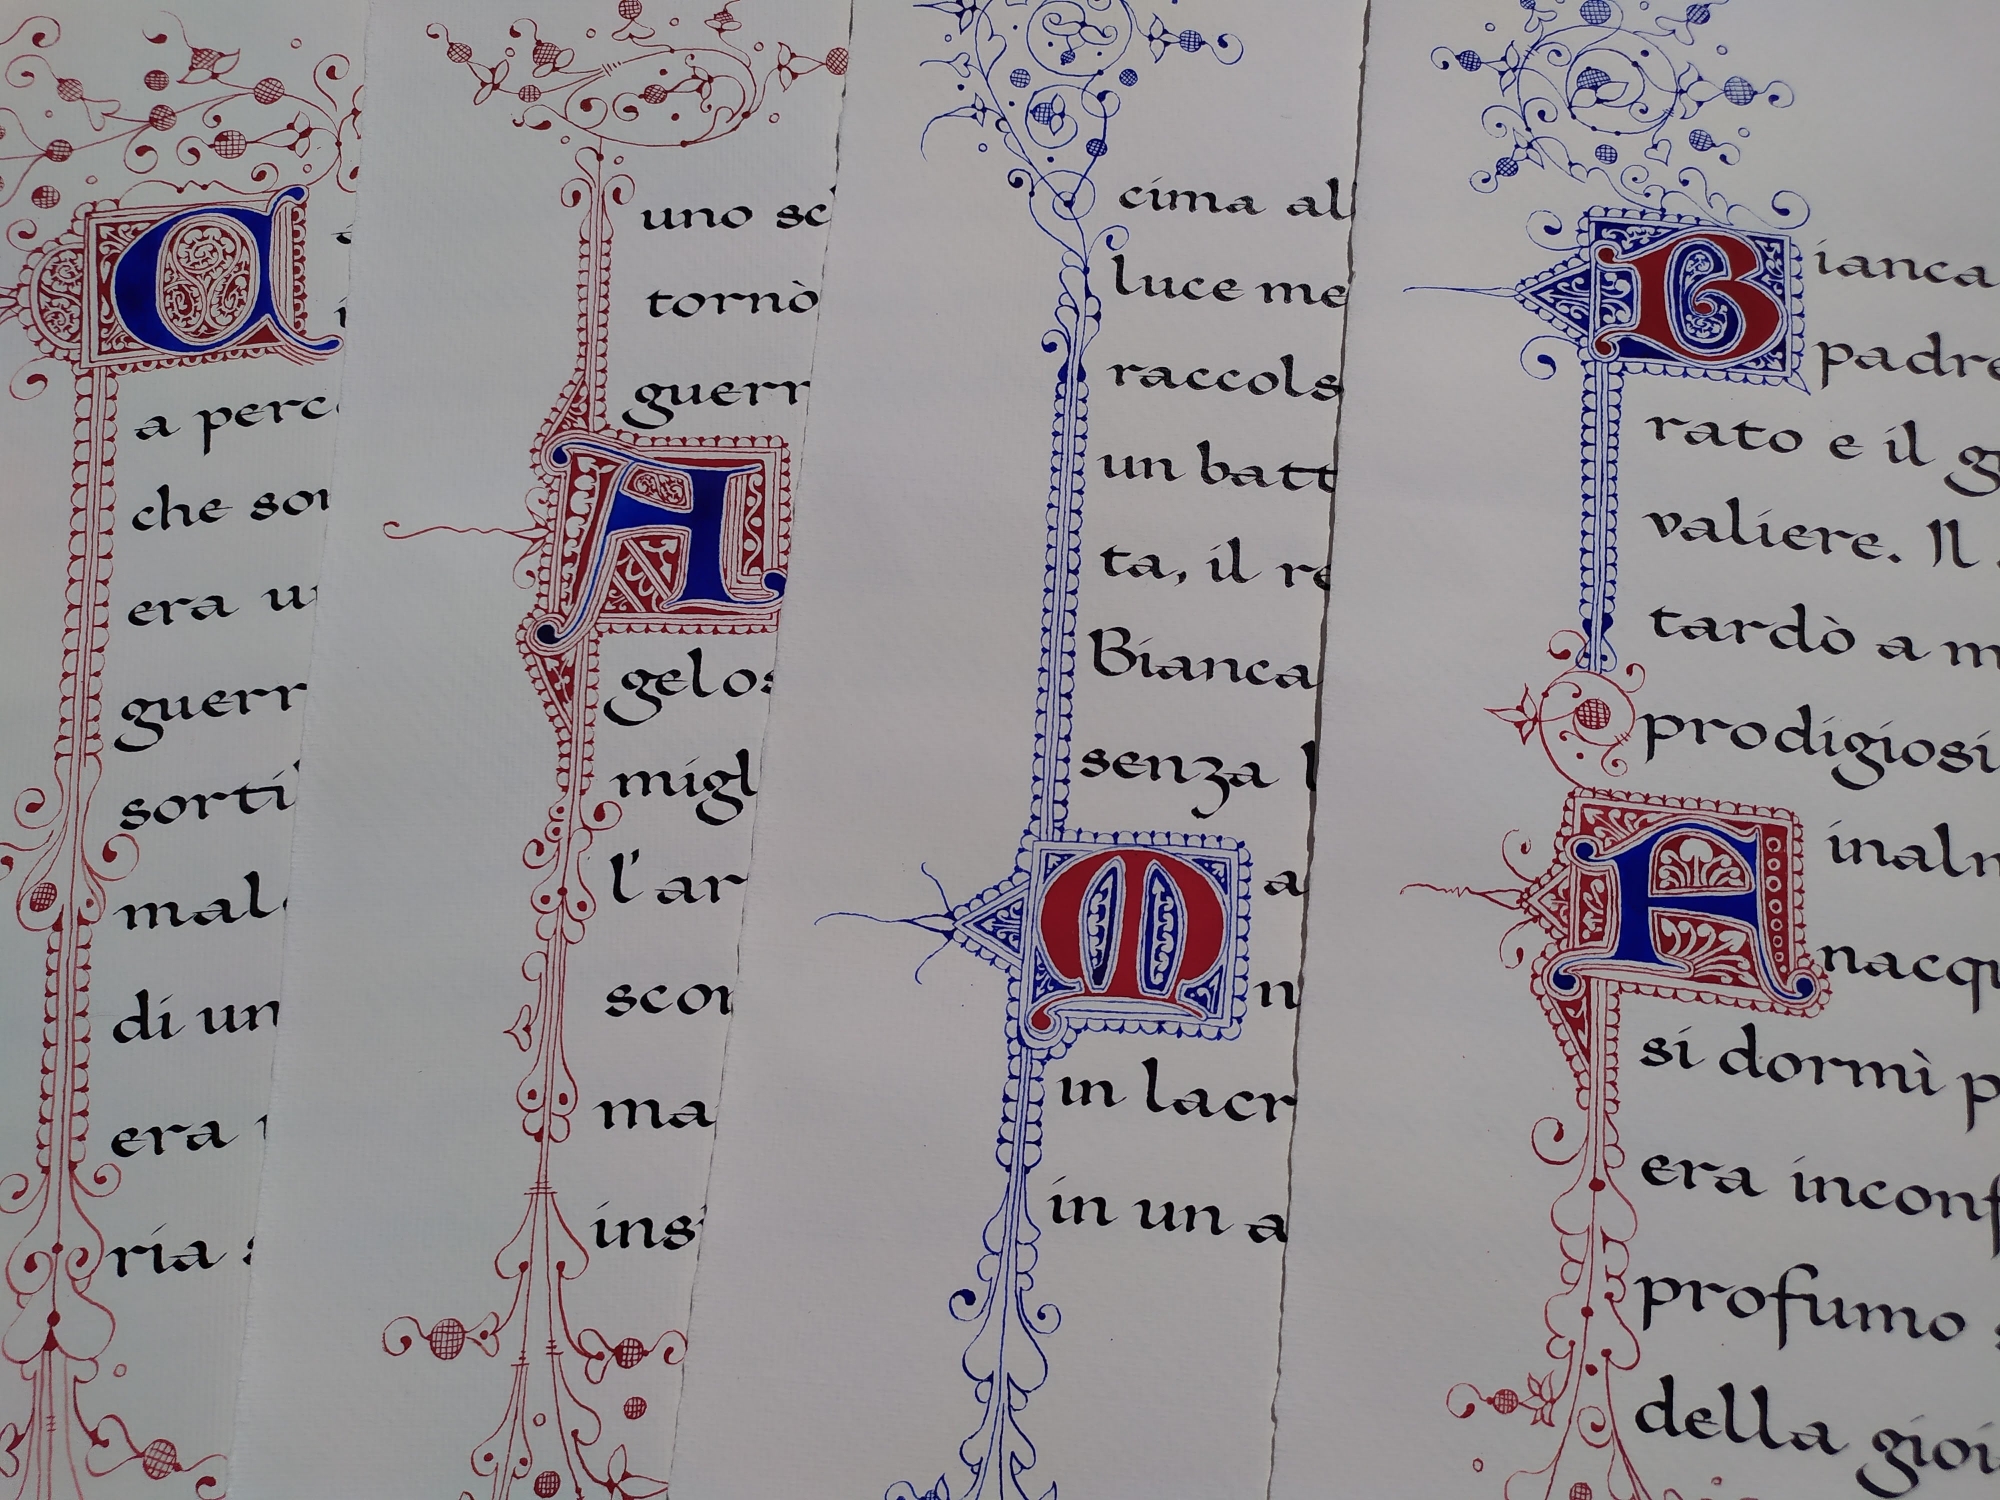 a perc
che son
era u
guerr
sorti
mal
di un
era
ria
uno sc
tornò
guerr
A
gelos
migl
l'ar
scon
ma
insi
cima al
luce me
raccols
un batt
ta, il re
Bianca
senza l
Ma
n
in lacr
in un a
Bianca
padre
rato e il g
valiere. Il
tardò a m
prodigiosi
Ainaln
nacqu
si dormì p
era inconf
profumo
della gioi